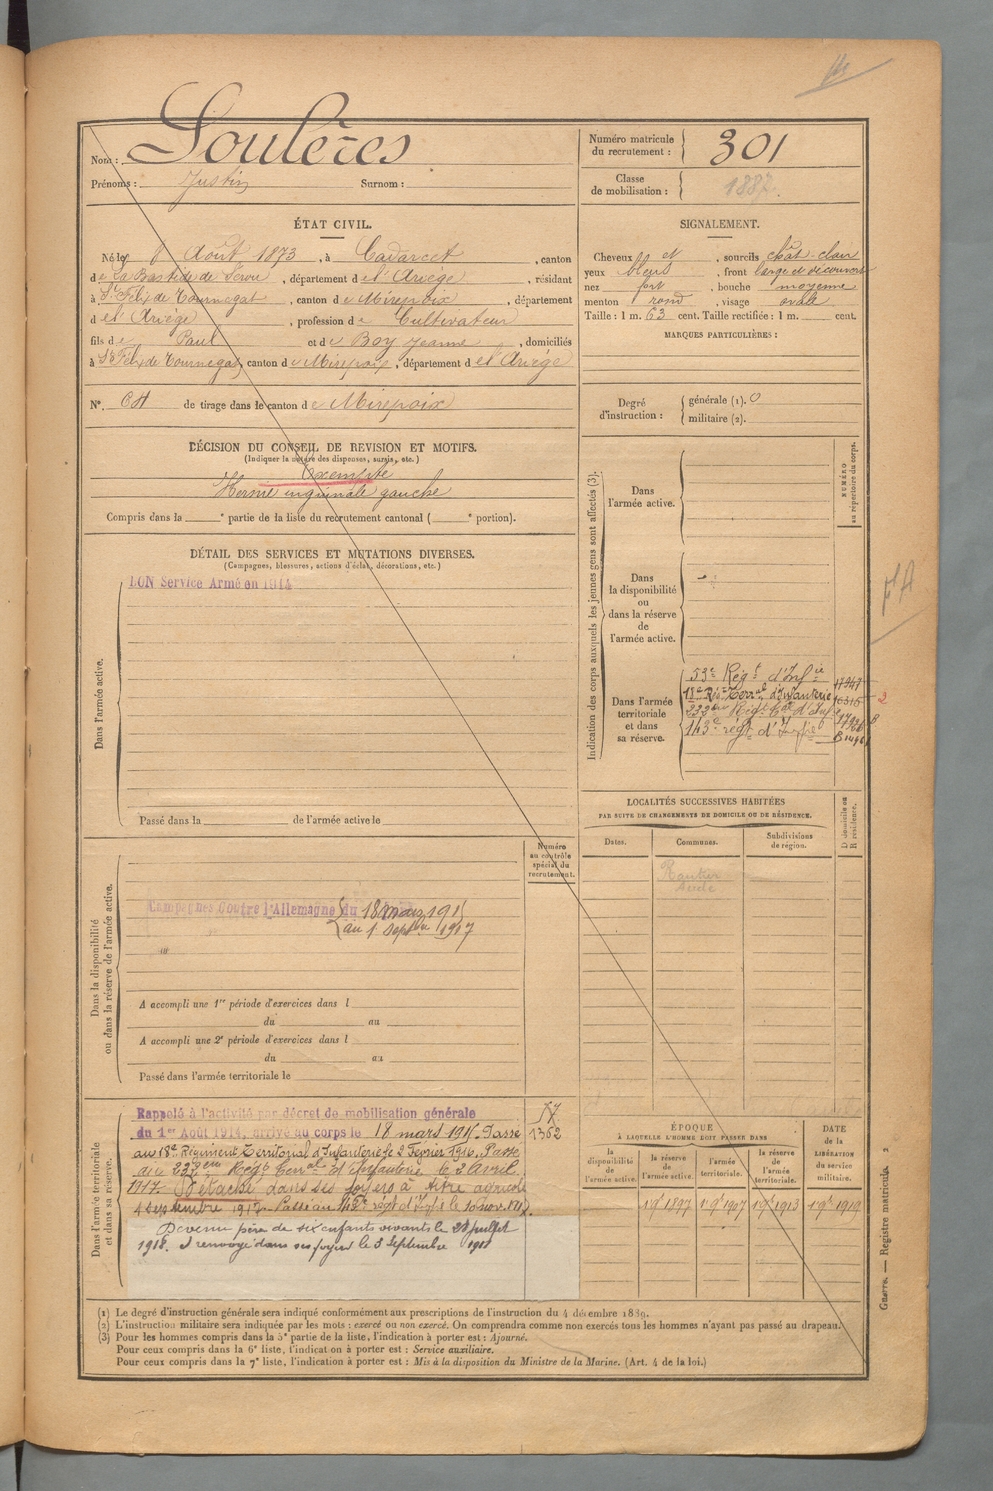 Nom : Soulères
Prénoms : Justin Surnom :
Numéro matricule du recrutement : 301
Classe de mobilisation : 1887
ÉTAT CIVIL.
Né le 8 Août 1873, à Cadarcet, canton
de La Bastide de Sérou, département de l'Ariège, résidant
à St Félix de Tournegat, canton de Mirepoix, département
de l'Ariège, profession de Cultivateur
fils de Paul et de Boy Jeanne, domiciliés
à St Félix de Tournegat, canton de Mirepoix, département de l'Ariège
N° 64 de tirage dans le canton de Mirepoix
SIGNALEMENT.
Cheveux et, sourcils chât-clair
yeux bleus, front large et découvert
nez fort, bouche moyenne
menton rond, visage ovale
Taille : 1 m. 63 cent. Taille rectifiée : 1 m. cent.
MARQUES PARTICULIÈRES :
Degré d'instruction : générale (1). 0
militaire (2).
DÉCISION DU CONSEIL DE REVISION ET MOTIFS.
(Indiquer la nature des dispenses, sursis, etc.)
Exempté
Hernie inguinale gauche
Compris dans la e partie de la liste du recrutement cantonal ( e portion).
DÉTAIL DES SERVICES ET MUTATIONS DIVERSES.
(Campagnes, blessures, actions d'éclat, décorations, etc.)
BON Service Armé en 1914
Dans l'armée active.
Passé dans la de l'armée active le
Indication des corps auxquels les jeunes gens sont affectés (3).
NUMÉRO au répertoire du corps.
Dans l'armée active.
Dans la disponibilité ou dans la réserve de l'armée active.
Dans l'armée territoriale et dans sa réserve.
53e Régt d'Infie
18e Rég. Terral d'Infanterie
232eme Régt Ter d'Inf
143e régt d'Infie
LOCALITÉS SUCCESSIVES HABITÉES
PAR SUITE DE CHANGEMENTS DE DOMICILE OU DE RÉSIDENCE.
Dates. Communes. Subdivisions de région. D domicile ou R résidence.
Aude
Numéro au contrôle spécial du recrutement.
Dans la disponibilité ou dans la réserve de l'armée active.
Campagnes Contre l'Allemagne du 18 mars 1915
au 1 Septbre 1917
A accompli une 1re période d'exercices dans l
du au
A accompli une 2e période d'exercices dans l
du au
Passé dans l'armée territoriale le
Dans l'armée territoriale et dans sa réserve.
Rappelé à l'activité par décret de mobilisation générale
du 1er Août 1914, arrivé au corps le 18 mars 1915. Passé
au 18e Régiment Territorial d'Infanterie le 2 Février 1916. Passé
au 232eme Régt Terral d'Infanterie le 2 Avril
1917. Détaché dans ses foyers à titre agricole
4 septembre 1917. Passé au 143e régt d'Infie le 10 nov. 1917.
Devenu père de six enfants vivants le 28 juillet
1918. Et renvoyé dans ses foyers le 3 Septembre 1918
1362
ÉPOQUE
À LAQUELLE L'HOMME DOIT PASSER DANS
la disponibilité de l'armée active. la réserve de l'armée active. l'armée territoriale. la réserve de l'armée territoriale.
DATE de la LIBÉRATION du service militaire.
1 9bre 1897 1 9bre 1907 1 9bre 1913 1 9bre 1919
(1) Le degré d'instruction générale sera indiqué conformément aux prescriptions de l'instruction du 4 décembre 1889.
(2) L'instruction militaire sera indiquée par les mots : exercé ou non exercé. On comprendra comme non exercés tous les hommes n'ayant pas passé au drapeau.
(3) Pour les hommes compris dans la 5e partie de la liste, l'indication à porter est : Ajourné.
Pour ceux compris dans la 6e liste, l'indication à porter est : Service auxiliaire.
Pour ceux compris dans la 7e liste, l'indication à porter est : Mis à la disposition du Ministre de la Marine. (Art. 4 de la loi.)
Guerre. — Registre matricule. 2